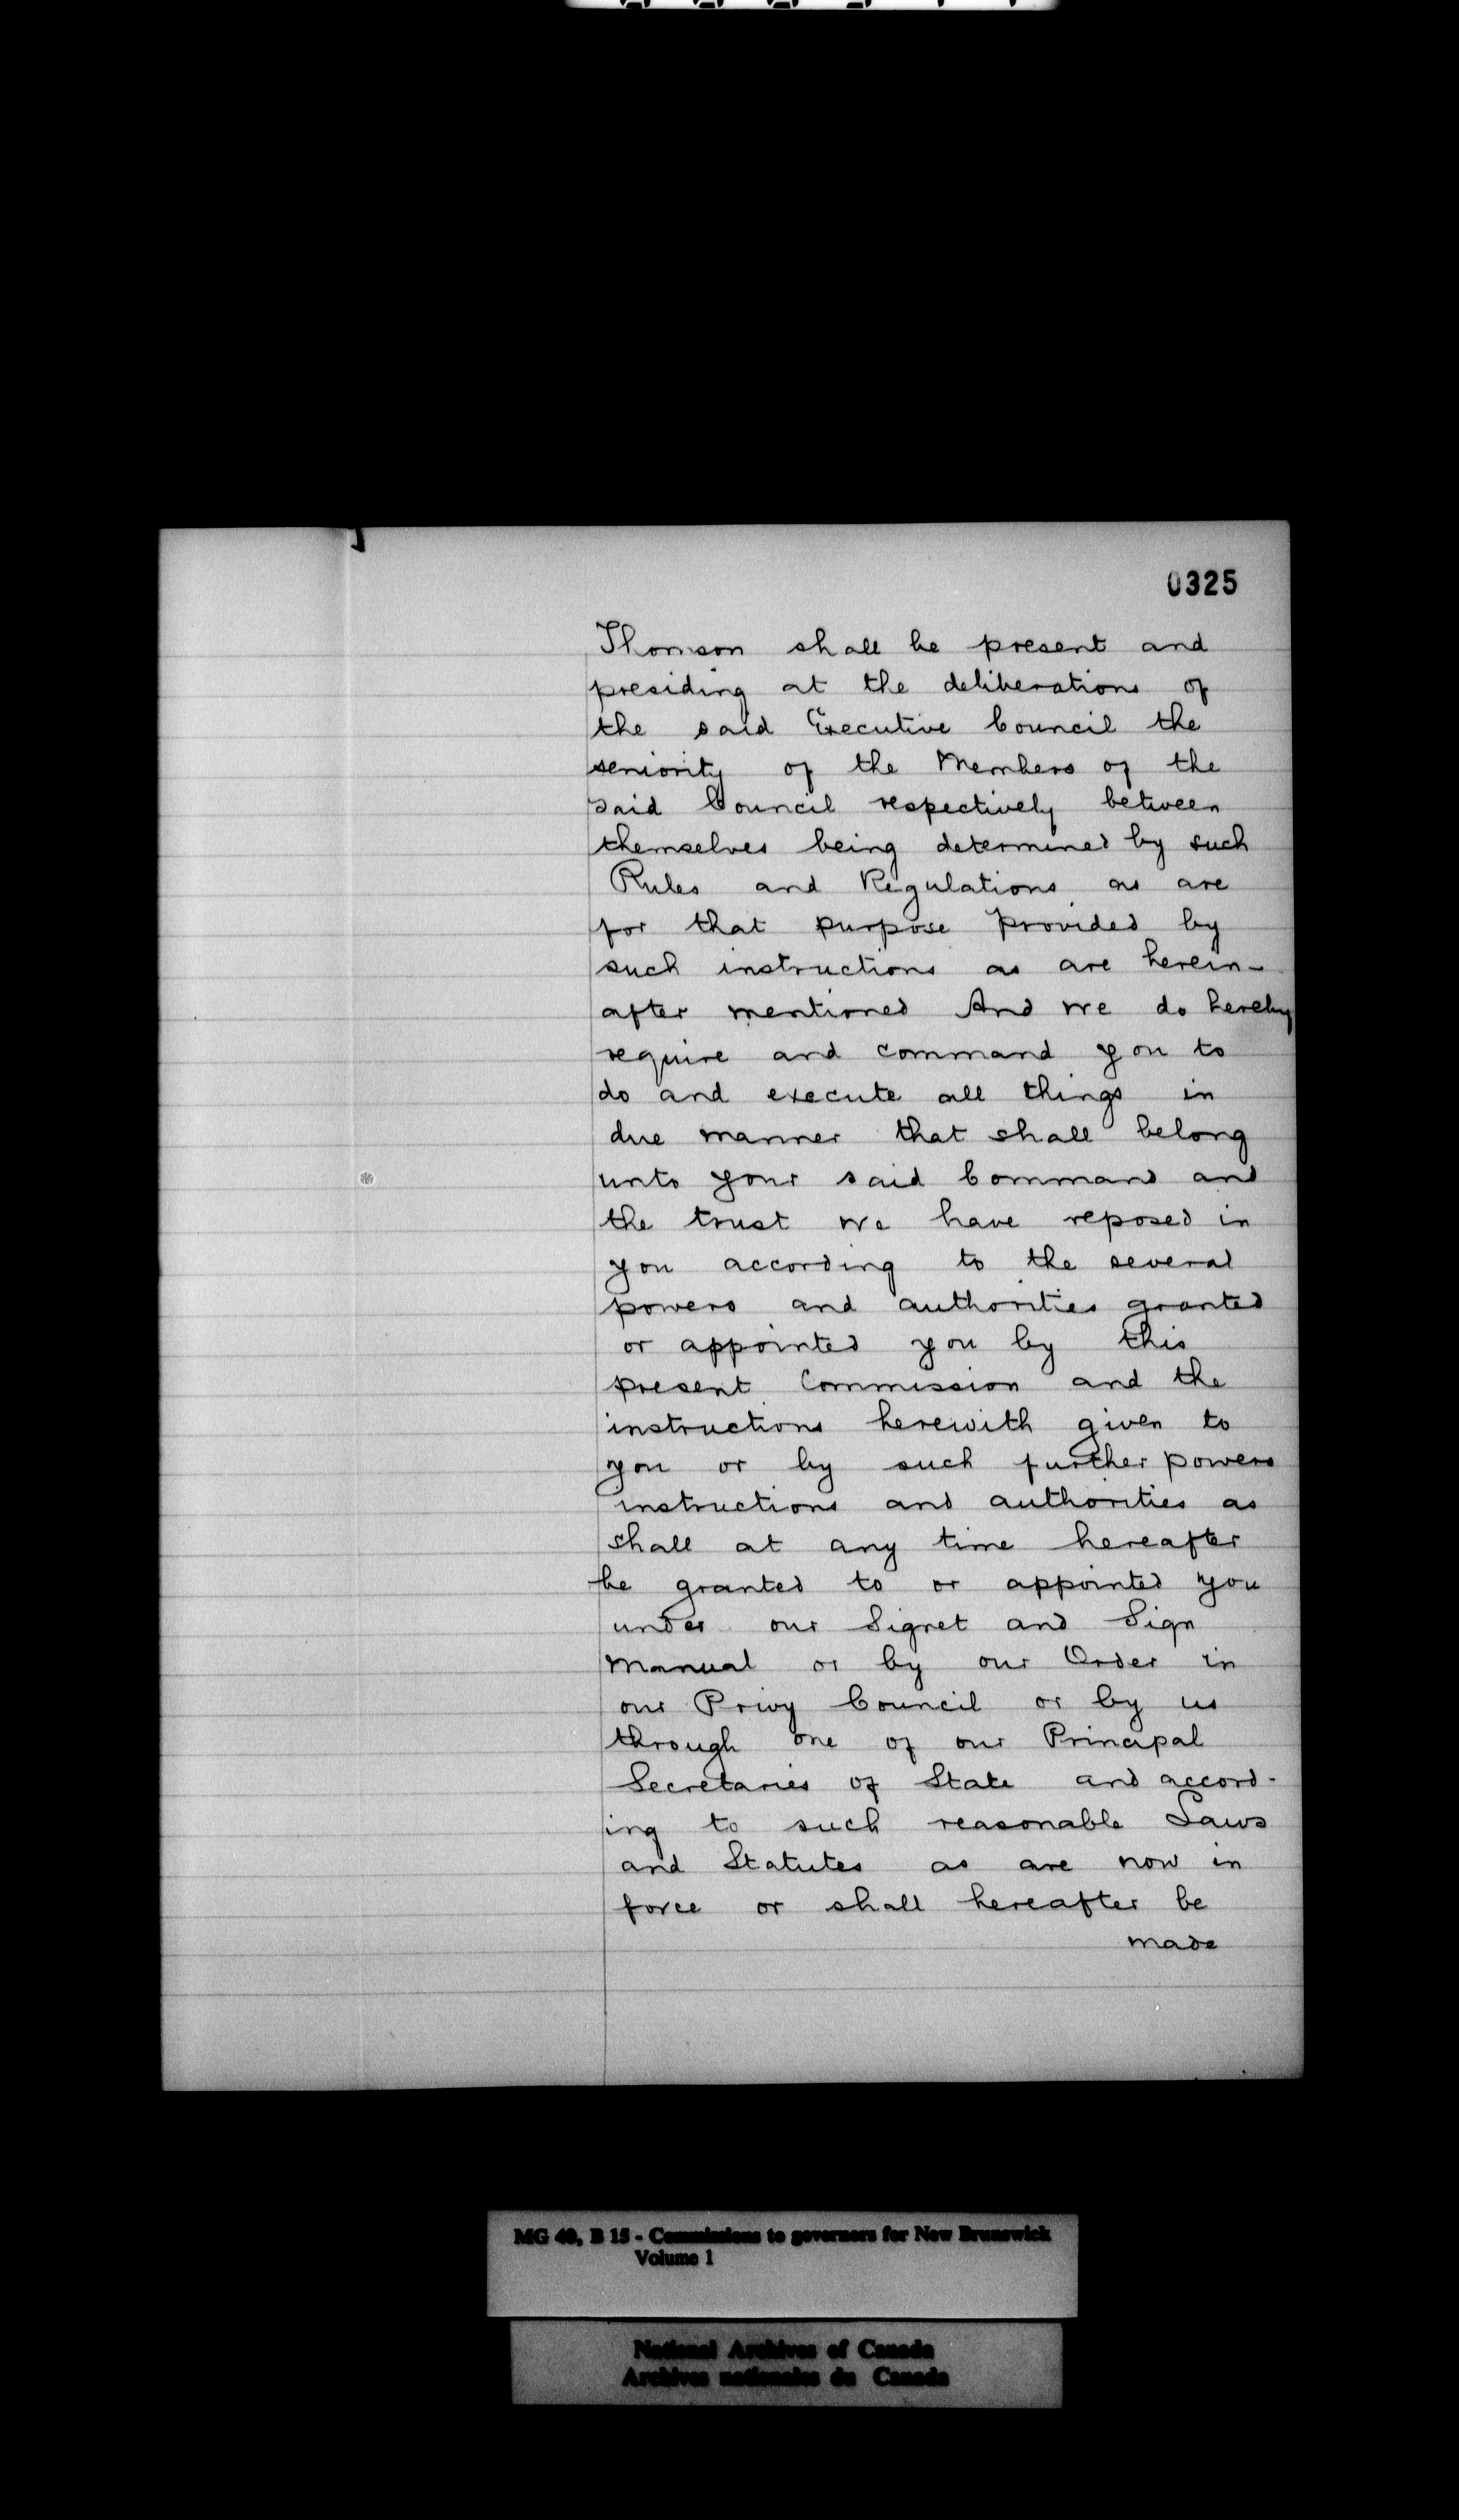 0325
Thomson shall be present and
presiding at the deliberations of
the said Executive Council the
seniority of the Members of the
said Council respectively between
themselves being determined by such
Rules and Regulations as are
for that purpose provided by
such instructions as are herein-
after mentioned And we do hereby
require and command you to
do and execute all things in
due manner that shall belong
unto your said Command and
the trust we have reposed in
you according to the several
powers and authorities granted
or appointed you by this
present Commission and the
instructions herewith given to
you or by such further powers
instructions and authorities as
shall at any time hereafter
be granted to or appointed you
under our Signet and Sign
Manual or by our Order in
our Privy Council or by us
through one of our Principal
Secretaries of State and accord-
ing to such reasonable Laws
and Statutes as are now in
force or shall hereafter be
made
MG 40, B 15 - Commissions to governors for New Brunswick
Volume 1
National Archives of Canada
Archives nationales du Canada